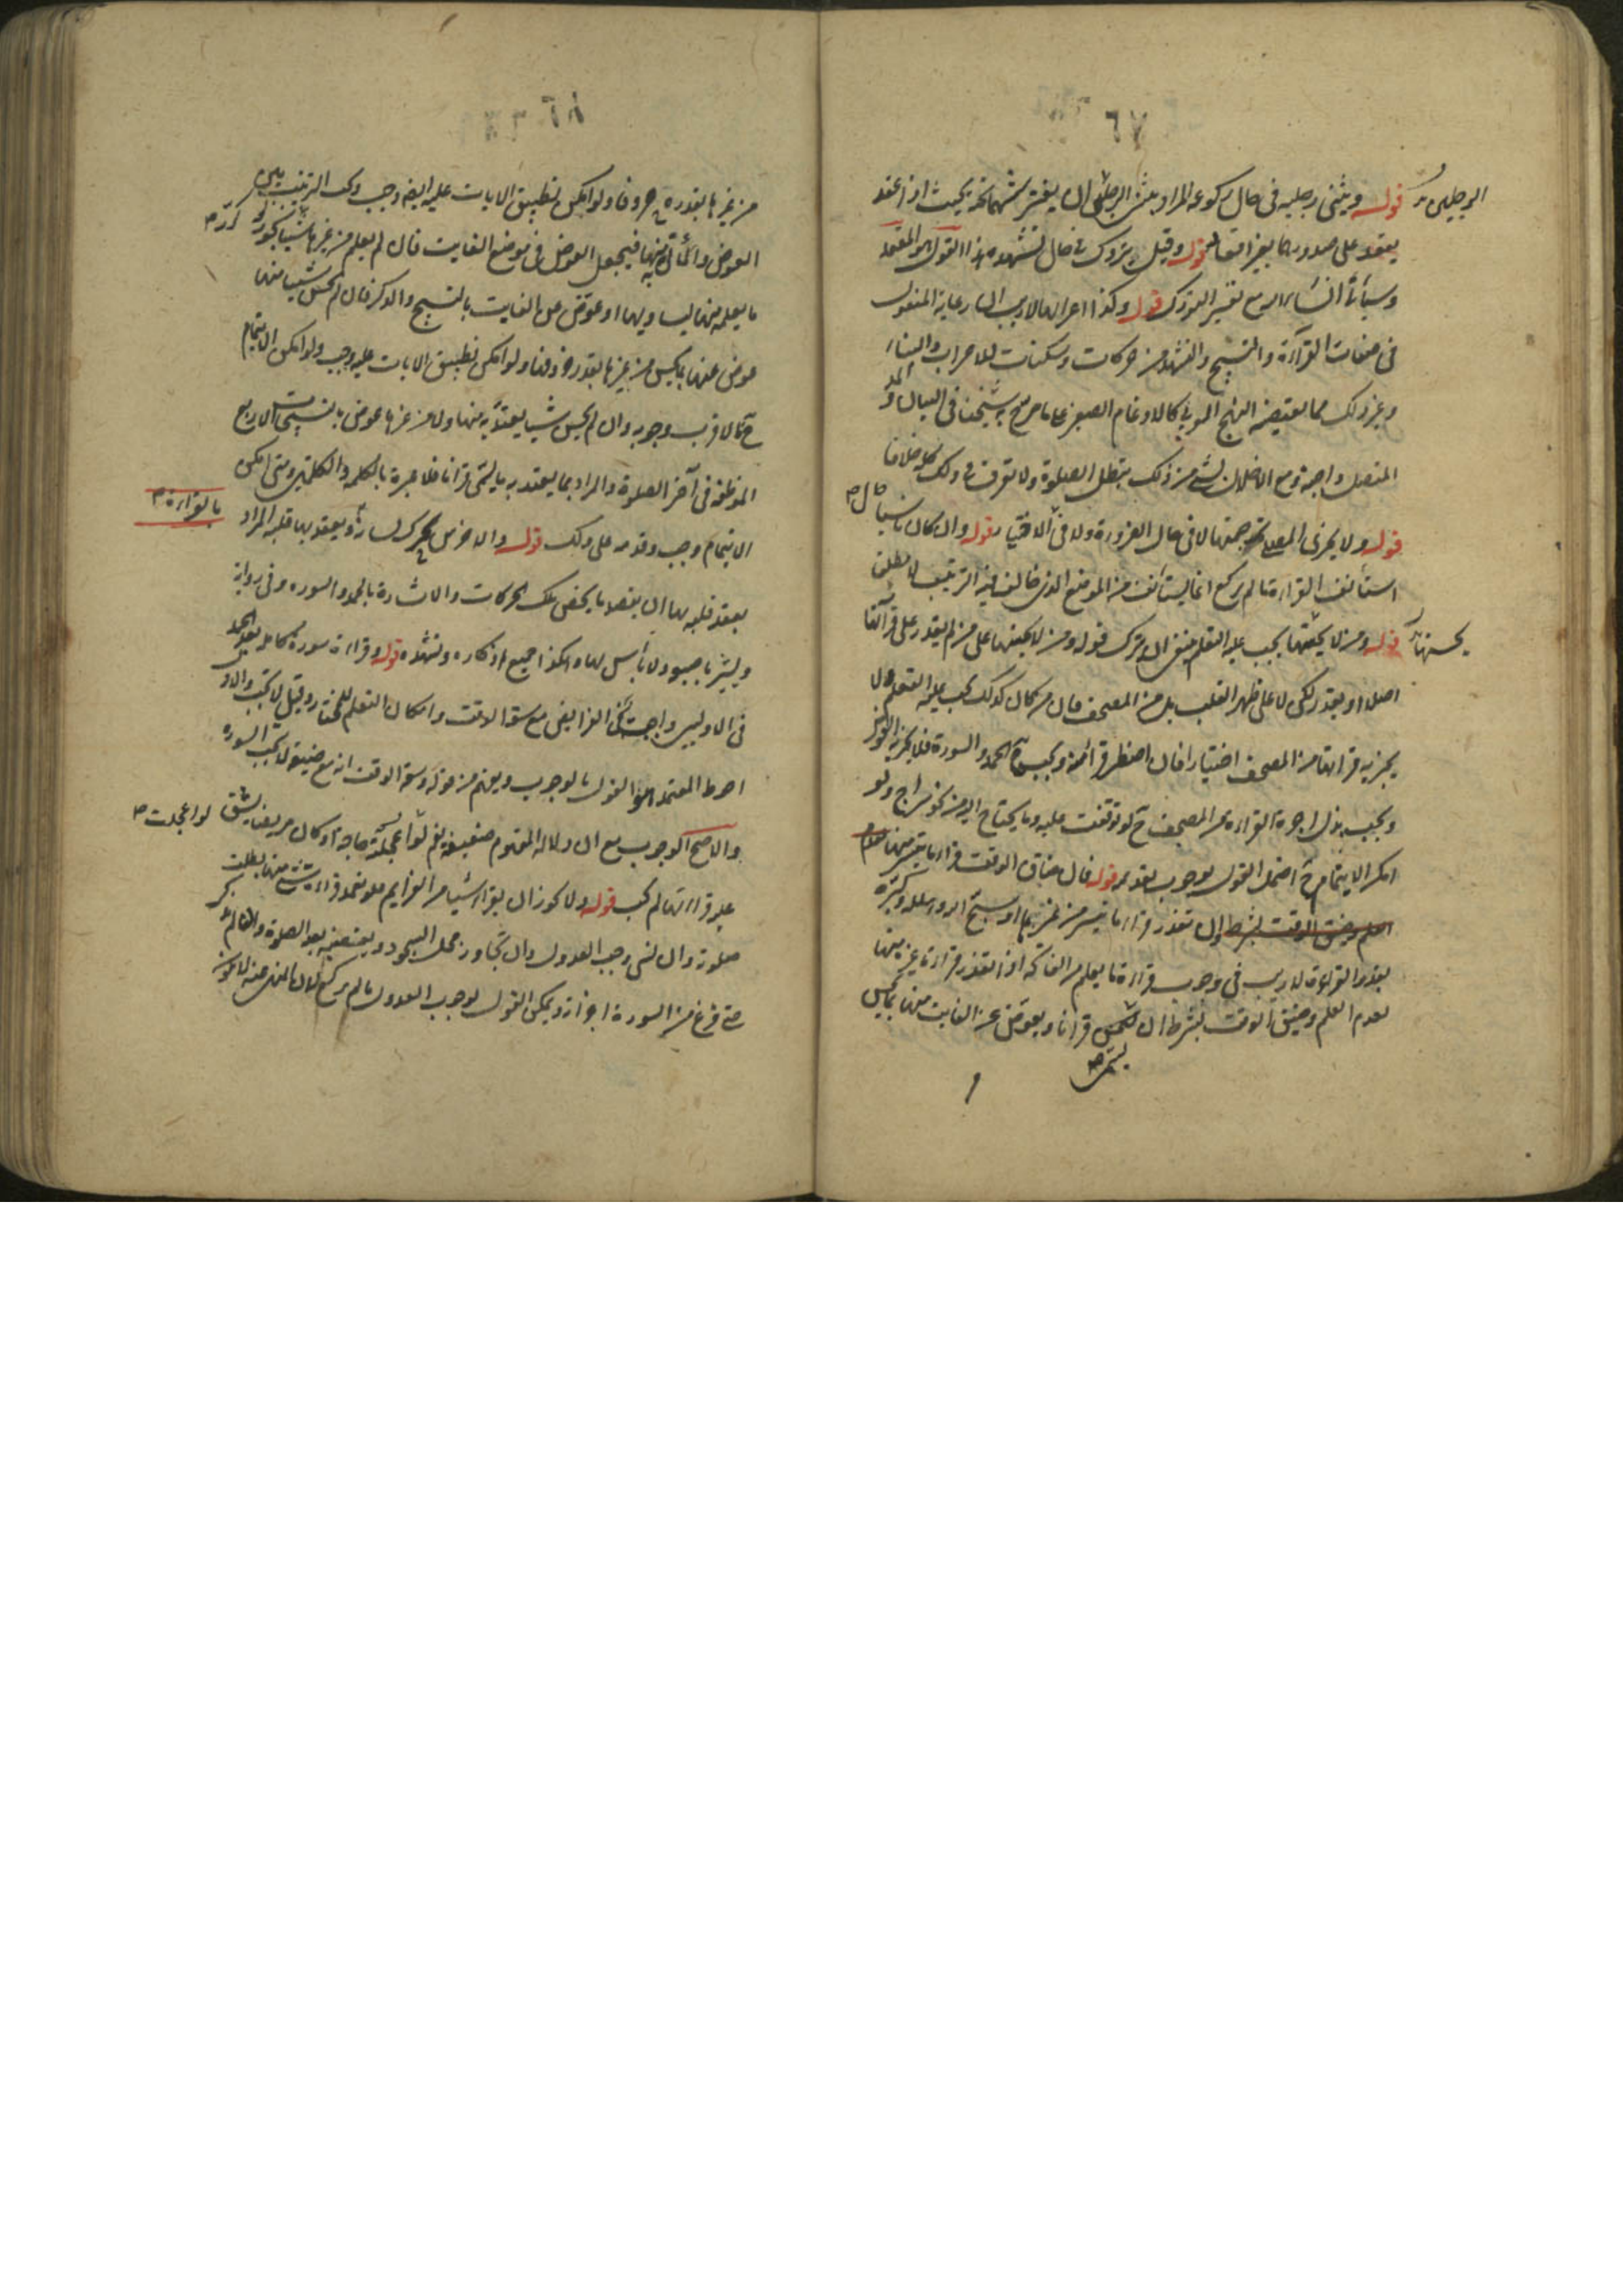 ٦٧
قوله ويثنى رجليه فى حال ركوعه المراد بثنى الرجلين ان يفترشهما تحته بحيث اذا قعد
يقعد على صدورهما بغير اقعاء قوله وقيل يتورك فى حال تشهده هذا القول هو المعتمد
وسيأتى انشاء الله مع تفسير التورك قوله وكذا اعرابها لا ريب ان رعاية المنقول
فى صفات القراءة والتسبيح والتشهد من حركات وسكنات للاعراب والبناء
وغير ذلك مما يقتضيه النهج العربى كالادغام الصغير على ما صرح به شيخنا فى البيان والمد
المتصل واجبة ومع الاخلال بشئ من ذلك تبطل الصلوة ولا نعرف فى ذلك كله خلافا
قوله ولا يجزى المصلى ترجمتها لا فى حال الضرورة ولا فى الاختيار قوله وان كان ناسيا
استأنف القراءة ما لم يركع انما يستأنف من الموضع الذى خالف فيه الترتيب لا مطلقا
قوله ومن لا يحسنها يجب عليه التعلم ينبغى ان يترك قوله ومن لا يحسنها على من لم يقدر على قرائتها
اصلا او يقدر لكن لا على ظهر القلب بل من المصحف فان من كان كذلك يجب عليه التعلم ولا
يجزيه قرائتها من المصحف اختيارا فان اضطر قرأ منه ويجب فى الحمد والسورة فلا يجزيه
ويجب بذل اجرة القراءة من المصحف لو توقفت عليه وما يحتاج اليه من نحو سراج ولو
امكن الايتمام اضمحل القول بوجوب تقديمه قوله فان ضاق الوقت قرأ ما تيسر منها
وان تعذر قرأ ما تيسر من غيرها او سبح الله وهلله وكبره
بقدر القراءة لا ريب فى وجوب قراءة ما يعلم من الفاتحة اذا تعذر قراءة غيره منها
لعدم العلم وضيق الوقت بشرط ان يسمى قرانا ويعوض عن الفايت منها بما يحسن
الرجلين
يحسنها
يسمى
٦٨
من غيرها بقدره حروفا ولو امكن تطبيق الايات عليه ايضا وجب وكذا الترتيب بين
العوض وما أتى به منها فيجعل العوض فى موضع الفايت فان لم يعلم من غيرها شيئا كرر
ما يعلمه منها ليساويها او عوض عن الفايت بالتسبيح والذكر فان لم يحسن شيئا منها
عوض عنها بما يحسن من غيرها بقدر حروفها ولو امكن تطبيق الايات عليه وجب ولو امكن الايتمام
فالاقرب وجوبه وان لم يحسن شيئا يعتد به منها ولا من غيرها عوض بالتسبيحات الاربع
الموظفة فى آخر الصلوة والمراد بما يعتد به ما يسمى قرانا فلا عبرة بالكلمة والكلمتين ومتى امكن
الايتمام وجب وقدمه على ذلك قوله والاخرس يحرك لسانه ويعقد بها قلبه المراد
بعقد قلبه بها ان يقصد ما يخص تلك الحركات والاشارة بالحمد والسورة وفى رواية
ويشير باصبعه ولا بأس بها وهكذا جميع اذكاره وتشهده قوله وقراءة سورة كاملة بعد الحمد
فى الاوليين واجب فى الفرايض مع سعة الوقت وامكان التعلم للمختار وقيل لا تجب والاول
احوط المعتمد هو القول بالوجوب ويفهم من قوله وسعة الوقت انه مع ضيقه لا تجب السورة
والاصح الوجوب مع ان دلالة المفهوم ضعيفة نعم لو اعجلته حاجة او كان مريضا يشق
عليه قرائتها لم تجب قوله ولا يجوز ان يقرأ شيئا من العزايم فلو تعمد قراءة شئ منها بطلت
صلوته وان نسى وجب العدول وان تجاوز محل السجود ويقضيه بعد الصلوة وان لم يذكر
حتى فرغ من السورة اجزأته ويمكن القول بوجوب العدول ما لم يركع
كرر
بالقراءة
لو اعجلت